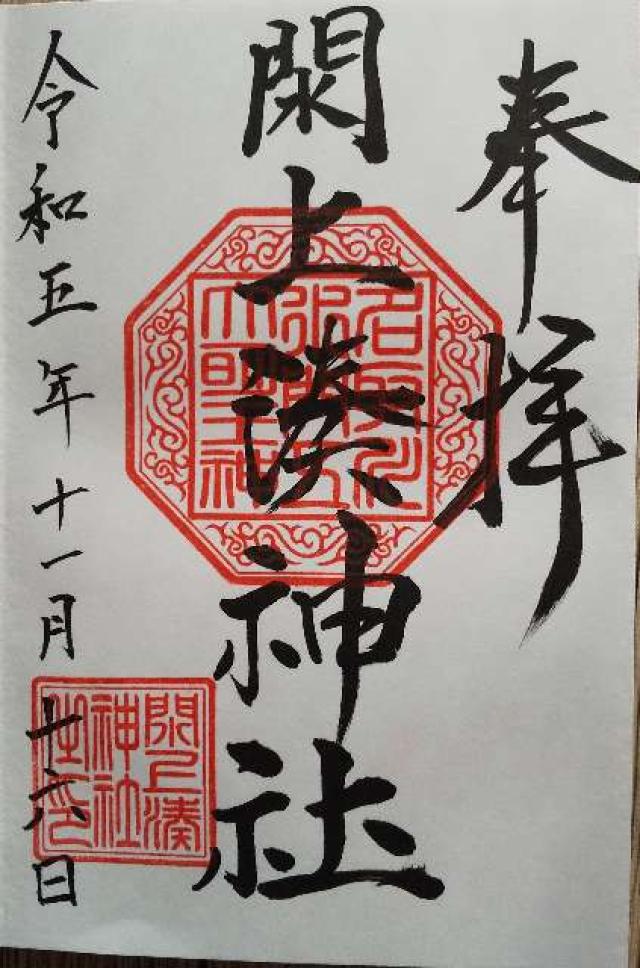 奉拝
閖上湊神社
令和五年十一月十六日
閖上湊
神社